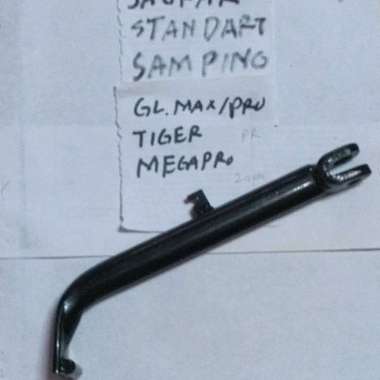 STANDART
SAMPING
GL.MAX/PRO
TIGER
MEGAPRO